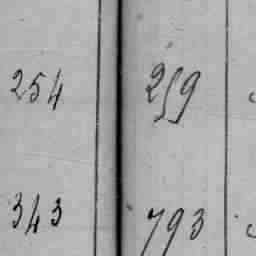 254 259
343 793